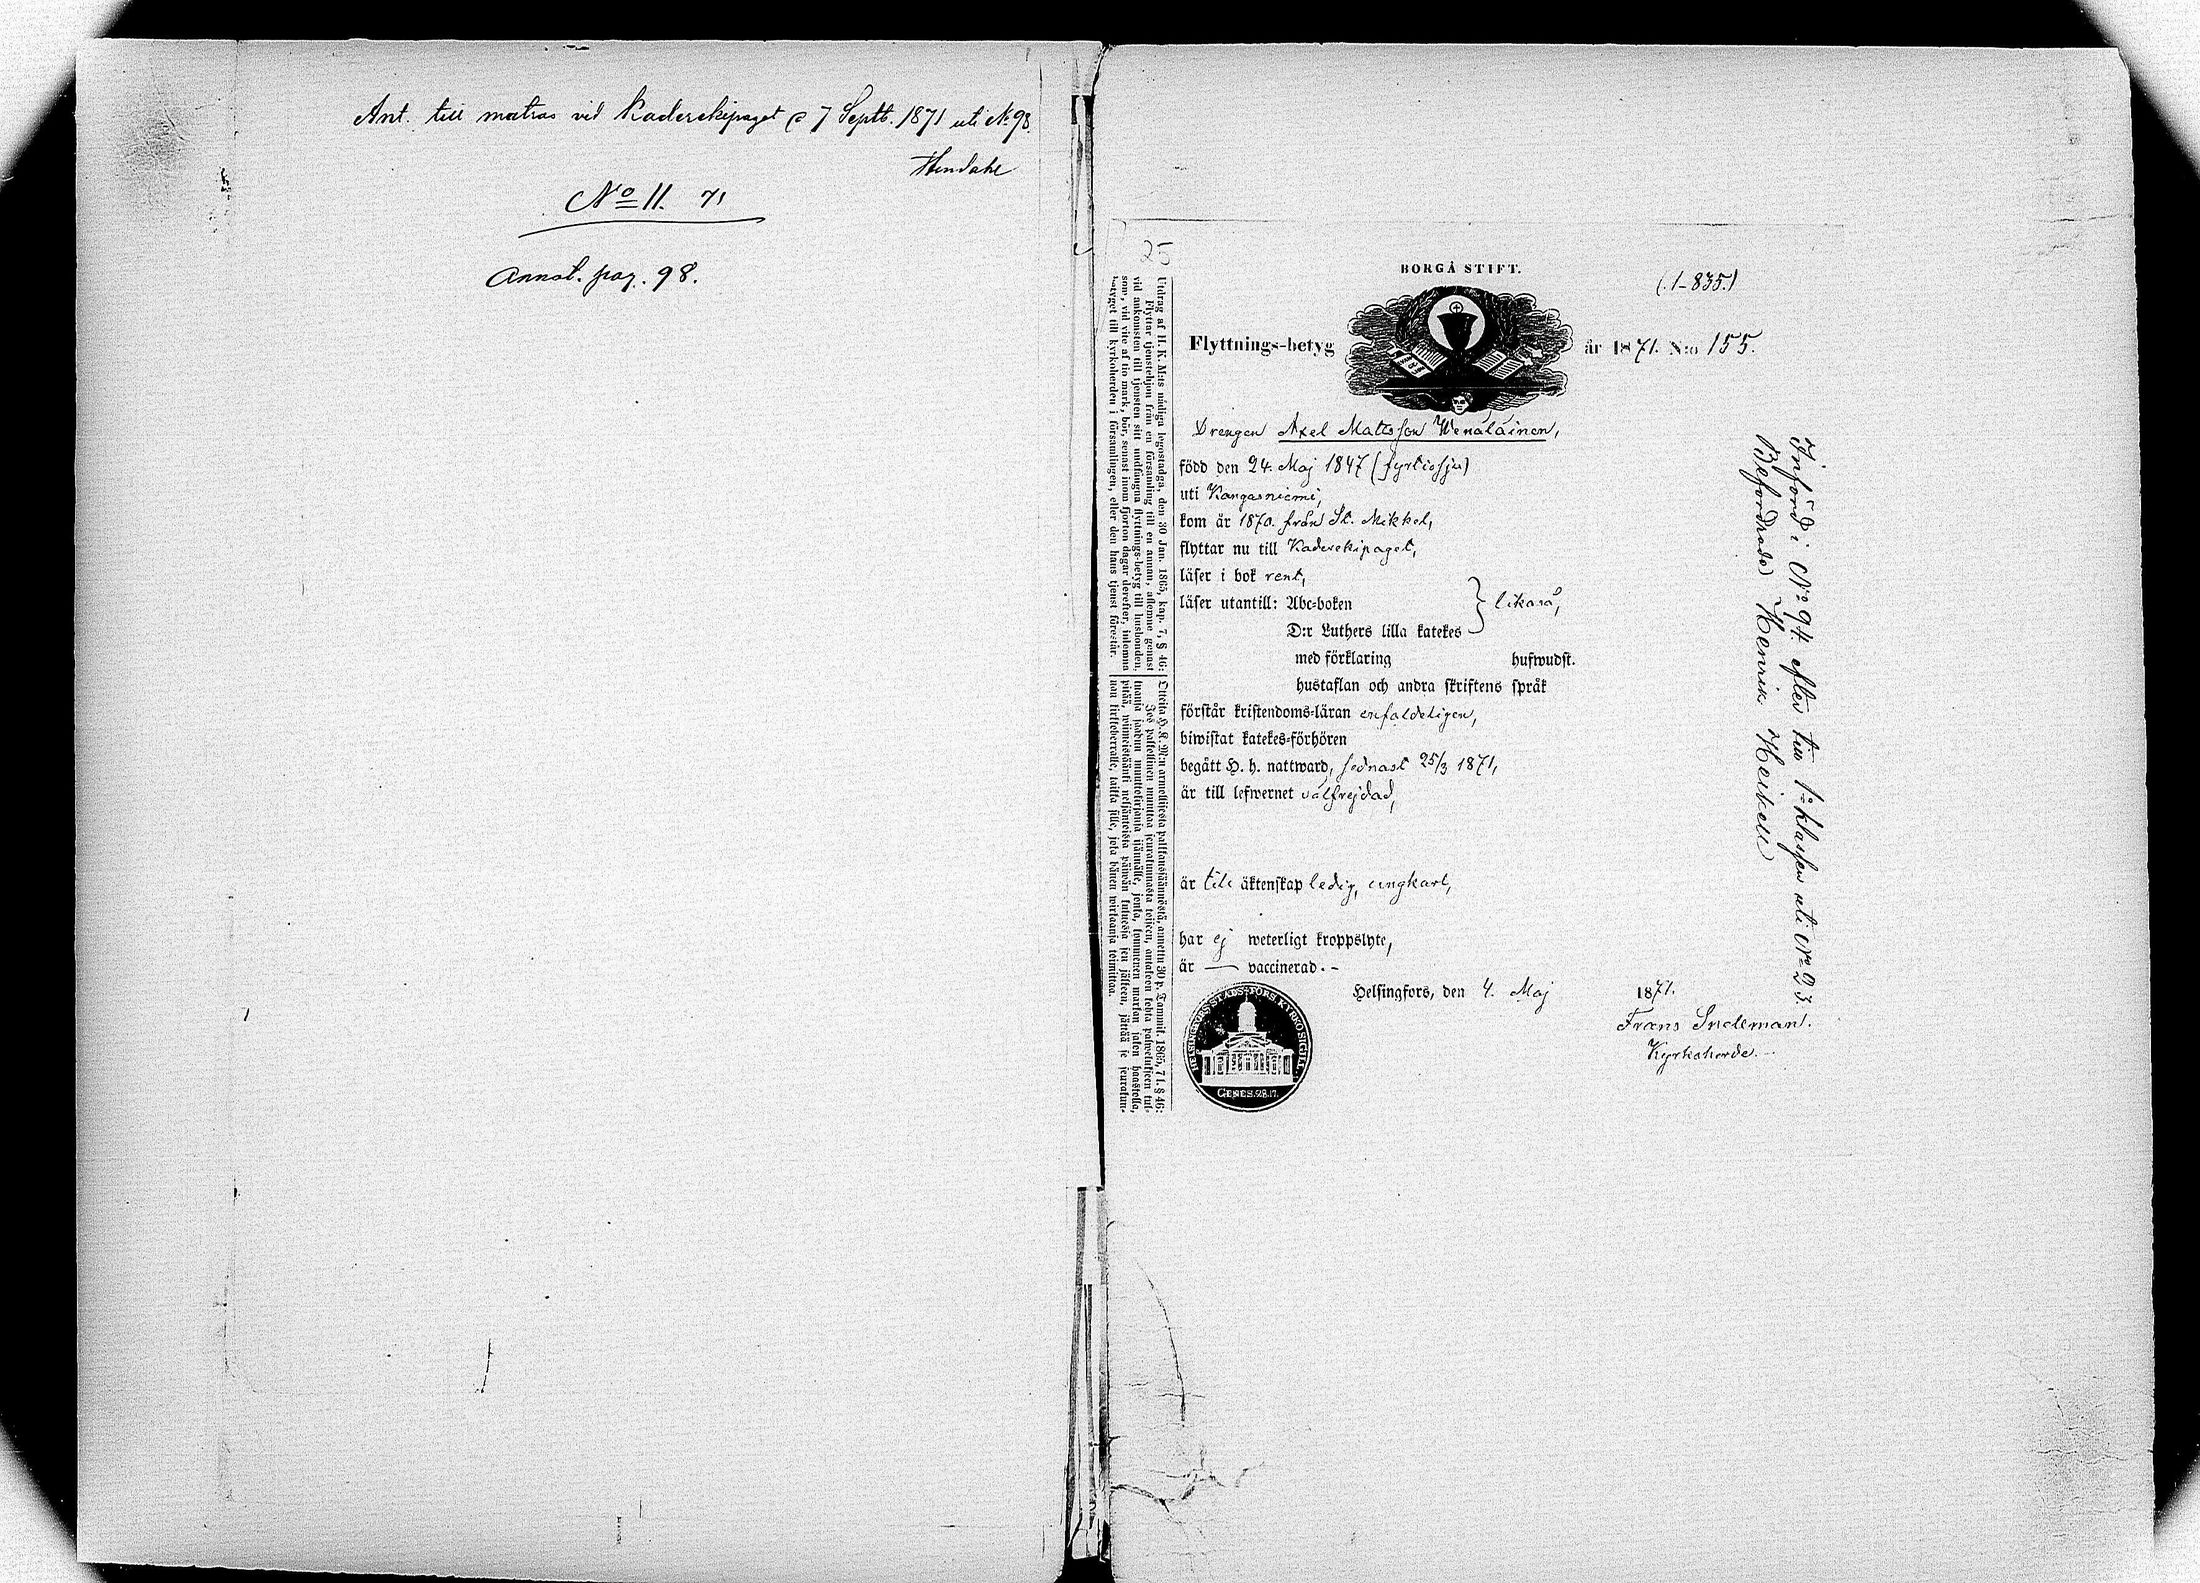 Ant. till matros vid Kaderekipaget d 7 Septb. 1871 uti No 98.
No 11. 71
Annot. pag. 98.
25
BORGÅ STIFT.
(1-835.)
Flyttnings-betyg år 1871. N:o 155.
Drengen Axel Mattsson Wenäläinen,
född den 24. Maj 1847 (fyrtiosju)
uti Kangasniemi,
kom år 1870. från St. Mikkel,
flyttar nu till Kaderekipaget,
läser i bok rent,
läser utantill: Abc-boken
D:r Luthers lilla katekes } likaså,
med förklaring hufwudst.
hustaflan och andra skriftens språk
förstår kristendoms-läran enfaldeligen,
biwistat katekes-förhören
begått H. h. nattward, sednast 25/3 1871,
är till lefwernet välfrejdad,
är till äktenskap ledig, ungkarl,
har ej weterligt kroppslyte,
är — vaccinerad. -
Helsingfors, den 4. Maj 1871.
Frans
Kyrkoherde. -
HELSINGFORS STADS KYRKO SIGILL
GENES. 28.17.
Utdrag af H. K. M:ts nådiga legostadga, den 30 Jan. 1865, kap. 7, § 46:
Flyttar tjenstehjon från en församling till en annan, aflemne genast
vid ankomsten till tjensten sitt undfångna flyttnings-betyg till husbonden,
som, vid vite af tio mark, bör, senast inom fjorton dagar derefter, inlemna
betyget till kyrkoherden i församlingen, eller den hans tjenst förestår.
Otteita H. K. M:n armollisesta palkkaussäännöstä, annettu 30 p. Tammik. 1865, 7 l. § 46:
Jos palkollinen muuttaa seurakunnasta toiseen, antakoon kohta palwelukseen tul-
tuansa saadun muuttokirjansa isännälle, jonka, kymmenen markan sakon haastolla,
pitää, wiimeistäänki neljäntoista päiwän kuluessa sen jälkeen, jättää se seurakun-
nan kirkkoherralle, taikka sille, joka hänen wirkaansa toimittaa.
Införd i No 94. efter till 1:a klassen uti No 23.
Befordrade Henrik Heikell